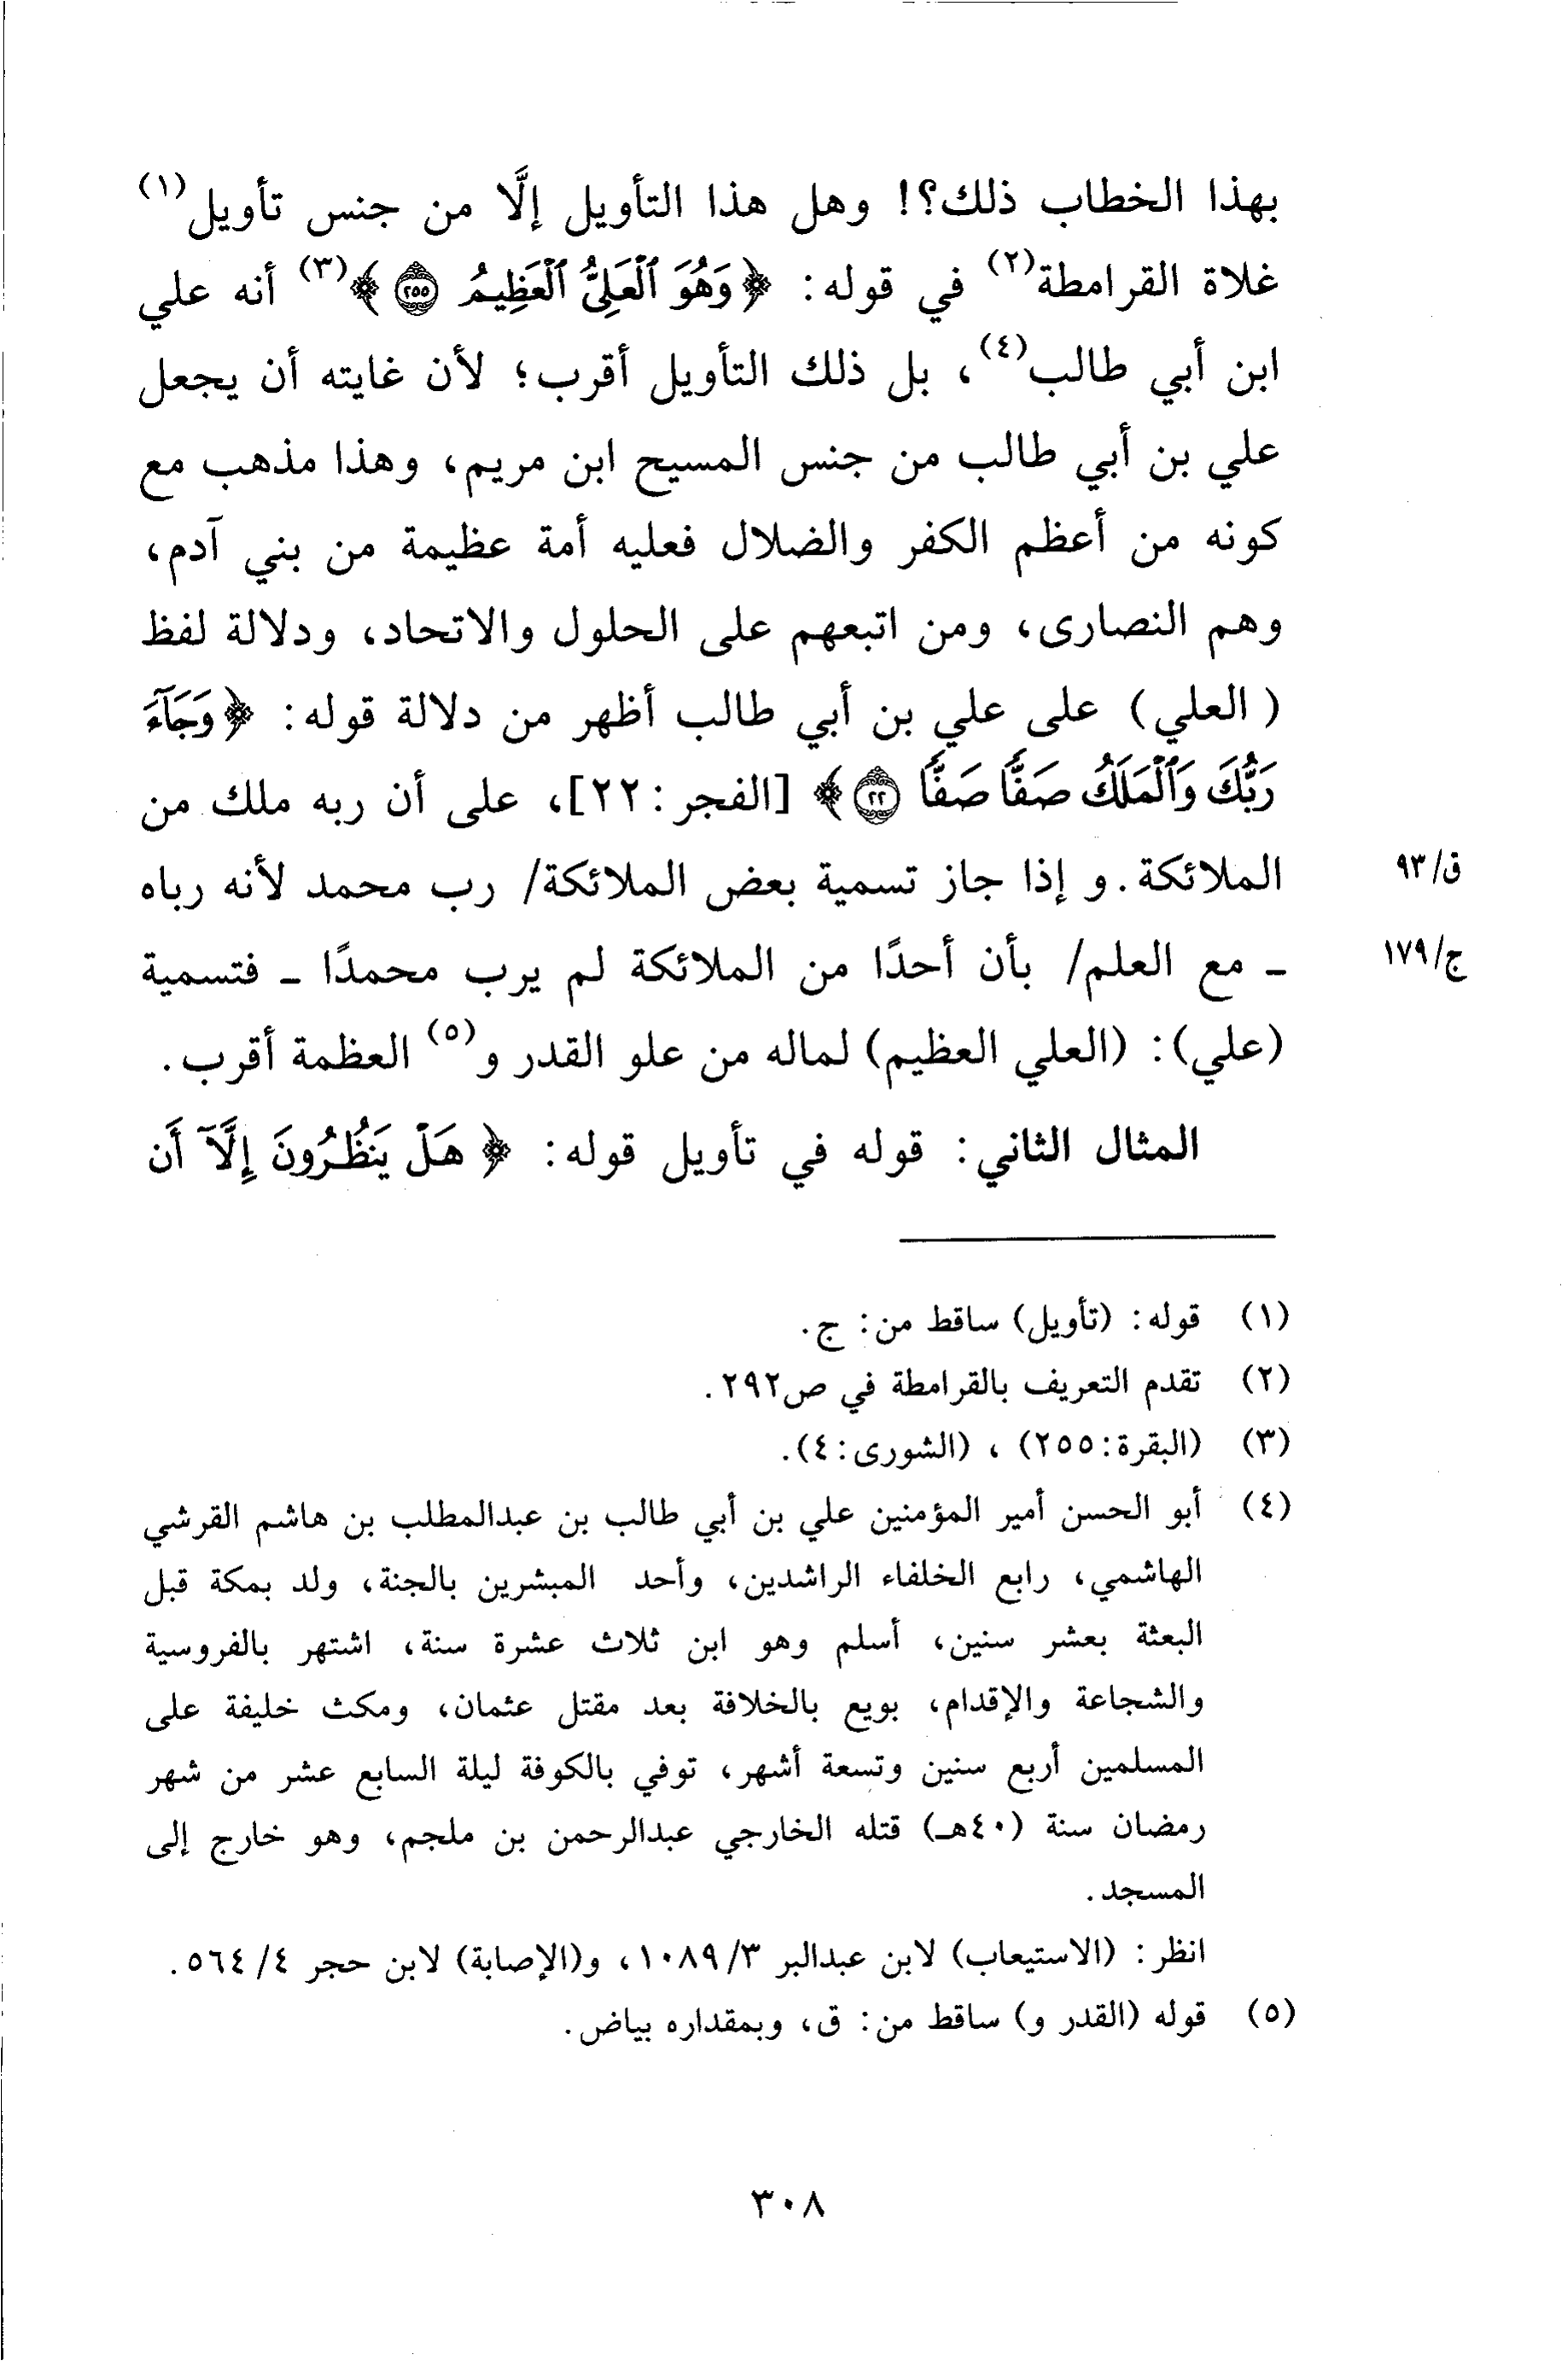 بهذا الخطاب ذلك؟! وهل هذا التأويل إلَّا من جنس تأويل(١)
غلاة القرامطة(٢) في قوله: ﴿وَهُوَ ٱلْعَلِىُّ ٱلْعَظِيمُ ٢٥٥﴾(٣) أنه علي
ابن أبي طالب(٤)، بل ذلك التأويل أقرب؛ لأن غايته أن يجعل
علي بن أبي طالب من جنس المسيح ابن مريم، وهذا مذهب مع
كونه من أعظم الكفر والضلال فعليه أمة عظيمة من بني آدم،
وهم النصارى، ومن اتبعهم على الحلول والاتحاد، ودلالة لفظ
(العلي) على علي بن أبي طالب أظهر من دلالة قوله: ﴿وَجَآءَ
رَبُّكَ وَٱلْمَلَكُ صَفًّا صَفًّا ٢٢﴾ [الفجر:٢٢]، على أن ربه ملك من
الملائكة. و إذا جاز تسمية بعض الملائكة/ رب محمد لأنه رباه
ق/٩٣
ـ مع العلم/ بأن أحدًا من الملائكة لم يرب محمدًا ـ فتسمية
ج/١٧٩
(علي): (العلي العظيم) لماله من علو القدر و(٥) العظمة أقرب.
المثال الثاني: قوله في تأويل قوله: ﴿هَلْ يَنظُرُونَ إِلَّآ أَن
(١) قوله: (تأويل) ساقط من: ج.
(٢) تقدم التعريف بالقرامطة في ص٢٩٢.
(٣) (البقرة:٢٥٥)، (الشورى:٤).
(٤) أبو الحسن أمير المؤمنين علي بن أبي طالب بن عبدالمطلب بن هاشم القرشي
الهاشمي، رابع الخلفاء الراشدين، وأحد المبشرين بالجنة، ولد بمكة قبل
البعثة بعشر سنين، أسلم وهو ابن ثلاث عشرة سنة، اشتهر بالفروسية
والشجاعة والإقدام، بويع بالخلافة بعد مقتل عثمان، ومكث خليفة على
المسلمين أربع سنين وتسعة أشهر، توفي بالكوفة ليلة السابع عشر من شهر
رمضان سنة (٤٠هـ) قتله الخارجي عبدالرحمن بن ملجم، وهو خارج إلى
المسجد.
انظر: (الاستيعاب) لابن عبدالبر ٣/١٠٨٩، و(الإصابة) لابن حجر ٤/٥٦٤.
(٥) قوله (القدر و) ساقط من: ق، وبمقداره بياض.
٣٠٨